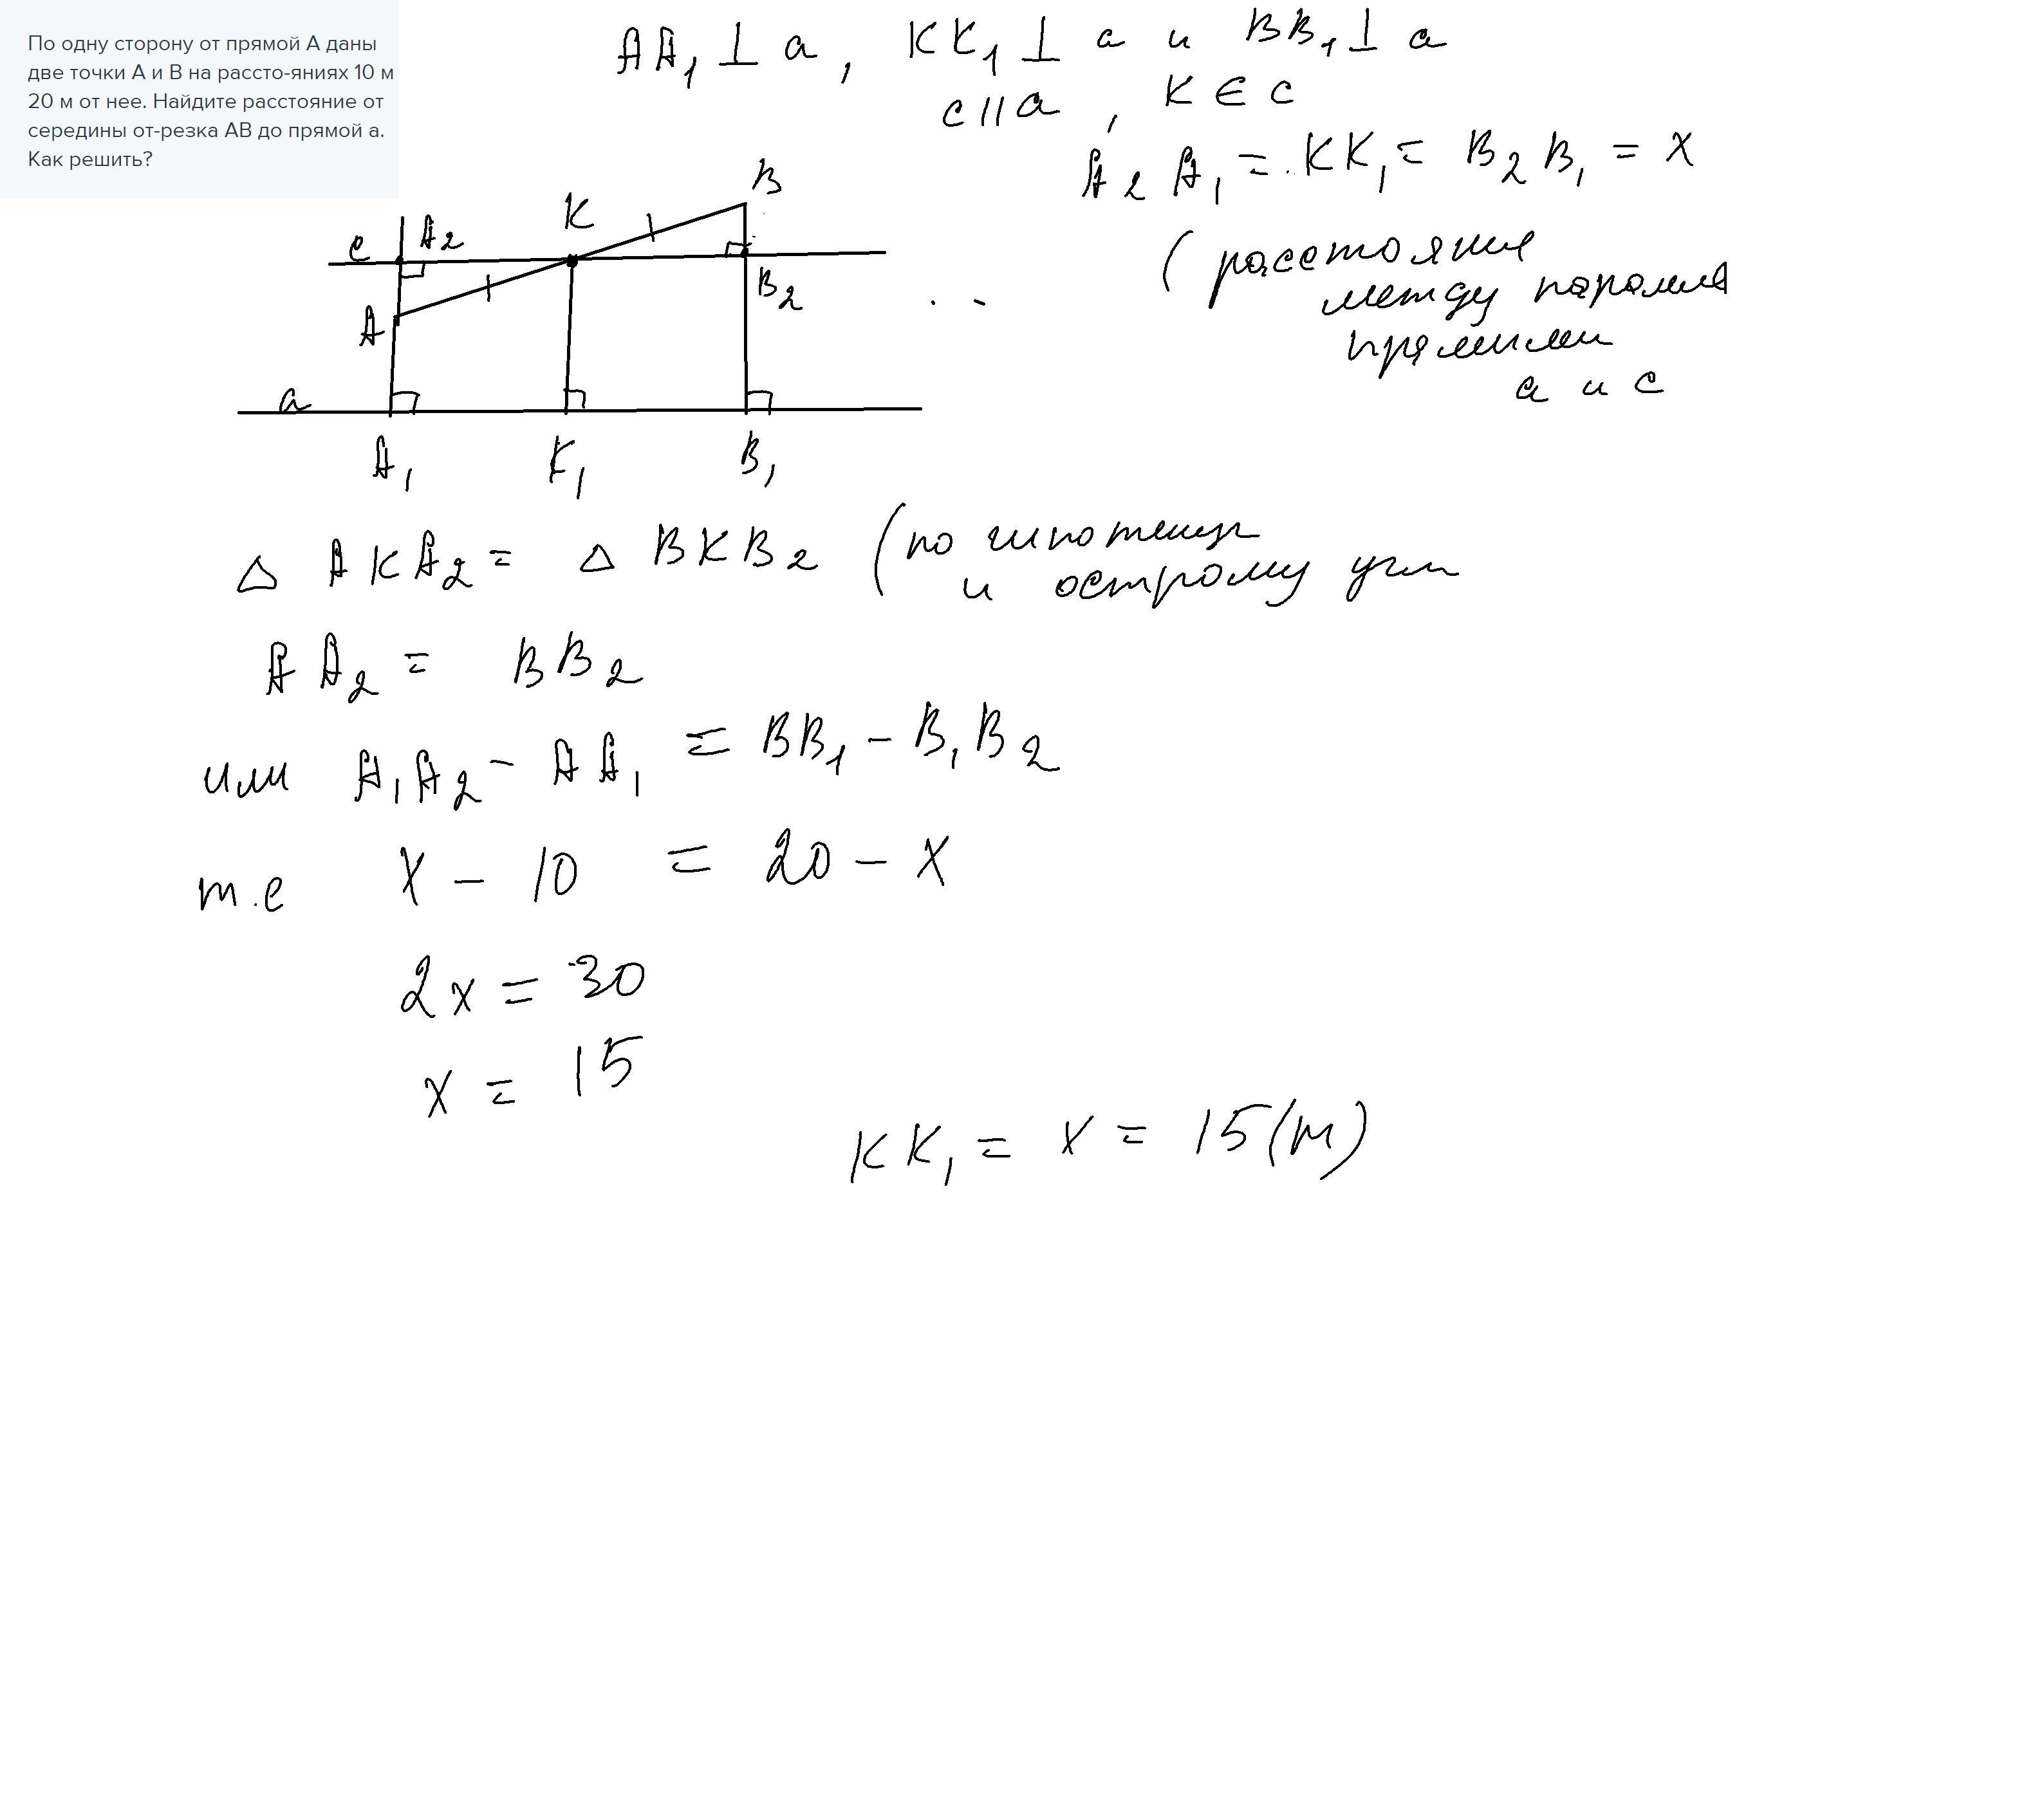 По одну сторону от прямой А даны
две точки А и В на рассто-яниях 10 м
20 м от нее. Найдите расстояние от
середины от-резка АВ до прямой а.
Как решить?
AA₁ ⊥ a, KK₁ ⊥ a и BB₁ ⊥ a
c || a, K ∈ c
A₂A₁ = KK₁ = B₂B₁ = x
(расстояние
между
прямыми
а и с
B
K
c A₂
B₂
A
a
A₁ K₁ B₁
△ AKA₂ = △ BKB₂ (по
и острому
AA₂ = BB₂
или A₁A₂ - AA₁ = BB₁ - B₁B₂
т.е x - 10 = 20 - x
2x = 30
x = 15
KK₁ = x = 15(м)